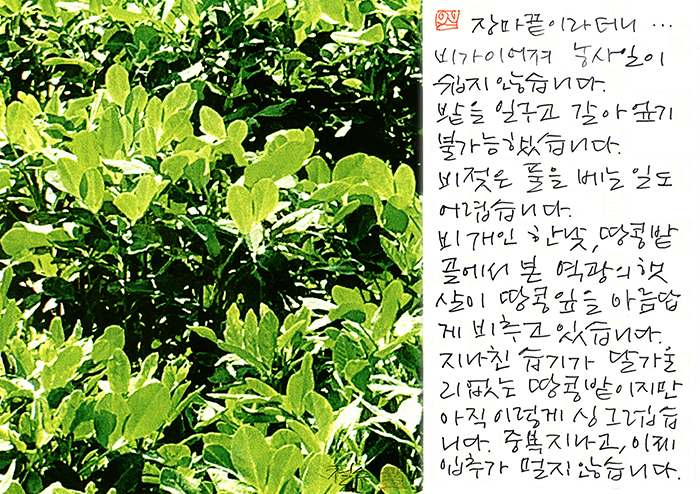 장마끝이라더니 …
비가이어져 농사일이
쉽지않습니다.
밭을 일구고 갈아엎기
불가능했습니다.
비젖은 풀을 베는 일도
어렵습니다.
비개인 한낮, 땅콩밭
끝에서 본 역광의햇
살이 땅콩잎을 아름답
게 비추고 있습니다.
지나친 습기가 달가울
리없는 땅콩밭이지만
아직이렇게 싱그럽습
니다. 중복지나고, 이제
입추가 멀지않습니다.